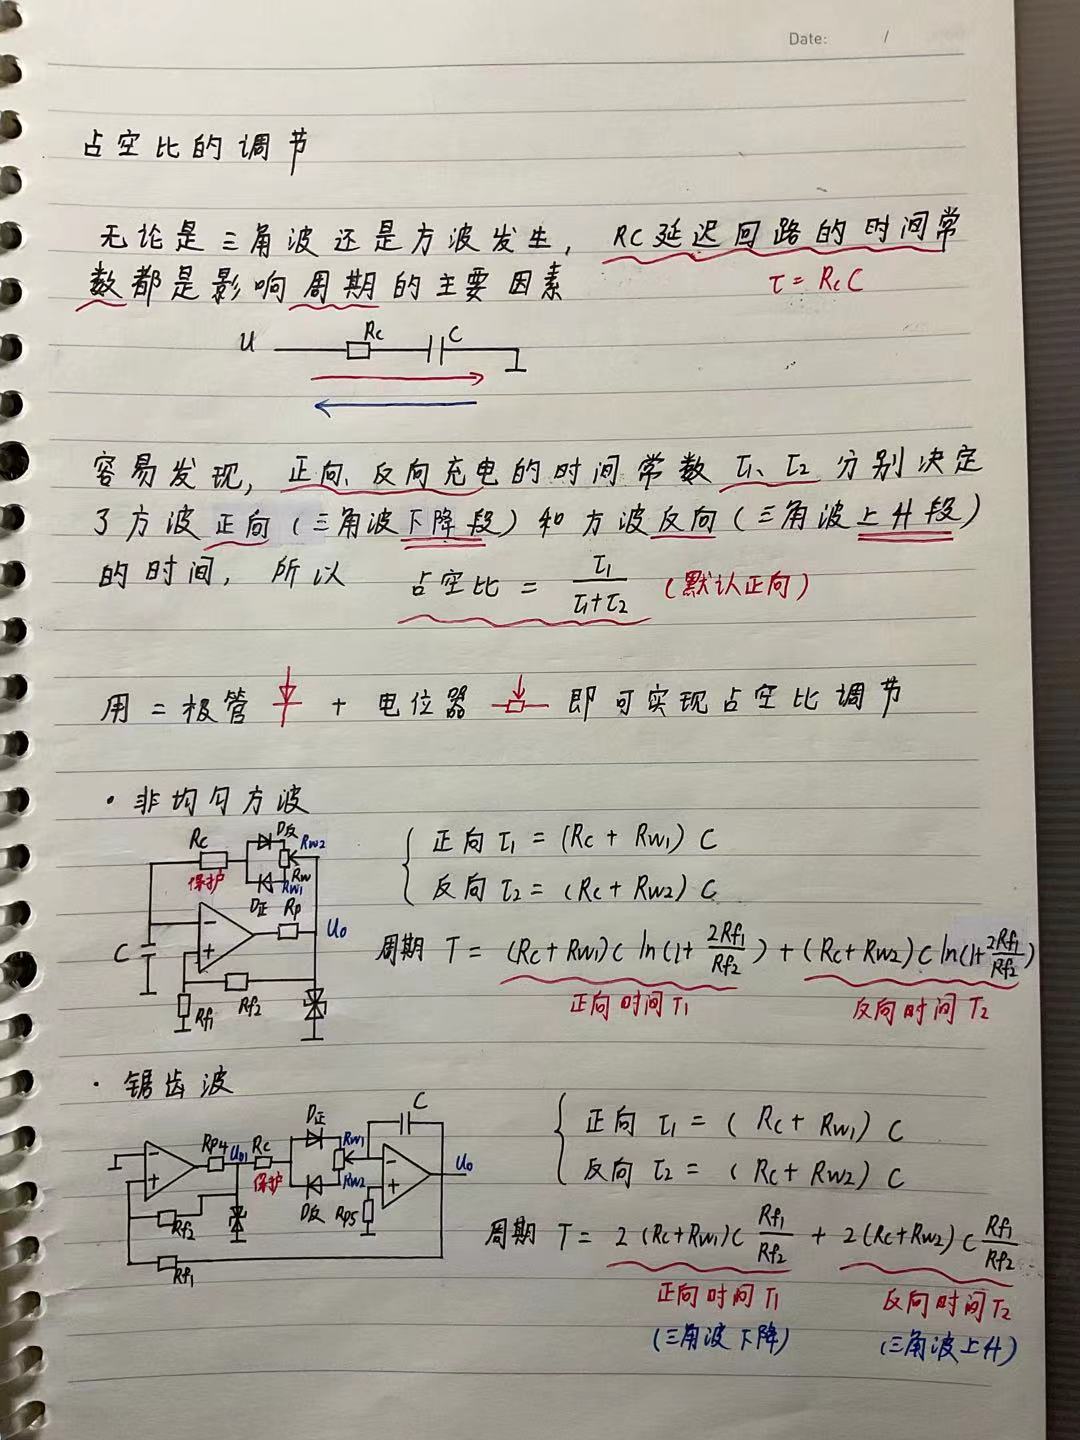 Date: /
占空比的调节
无论是三角波还是方波发生，RC延迟回路的时间常
数都是影响周期的主要因素 τ=RcC
U Rc C
容易发现，正向、反向充电的时间常数τ1、τ2分别决定
了方波正向（三角波下降段）和方波反向（三角波上升段）
的时间，所以 占空比 = τ1/(τ1+τ2) （默认正向）
用二极管 + 电位器 即可实现占空比调节
·非均匀方波
Rc D反 Rw2
保护 Rw1 Rw
D正 Rp
- U0
C +
Rf1 Rf2
正向 τ1 = (Rc + Rw1) C
反向 τ2 = (Rc + Rw2) C
周期 T = (Rc+Rw1)C ln(1+2Rf1/Rf2) + (Rc+Rw2)C ln(1+2Rf1/Rf2)
正向时间T1 反向时间T2
·锯齿波
D正 C
Rp4 U01 Rc Rw1
- - U0
+ 保护 Rw2 +
D反 Rp5
Rf2
Rf1
正向 τ1 = (Rc + Rw1) C
反向 τ2 = (Rc + Rw2) C
周期 T = 2(Rc+Rw1)C Rf1/Rf2 + 2(Rc+Rw2)C Rf1/Rf2
正向时间T1 反向时间T2
(三角波下降) (三角波上升)